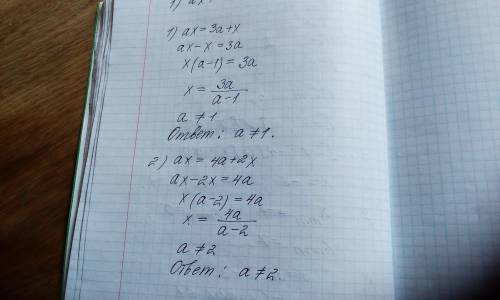 1) ax
1) ax = 3a + x
ax - x = 3a
x(a-1) = 3a
x = 3a / a-1
a ≠ 1
Ответ: a ≠ 1.
2) ax = 4a + 2x
ax - 2x = 4a
x(a-2) = 4a
x = 4a / a-2
a ≠ 2
Ответ: a ≠ 2.